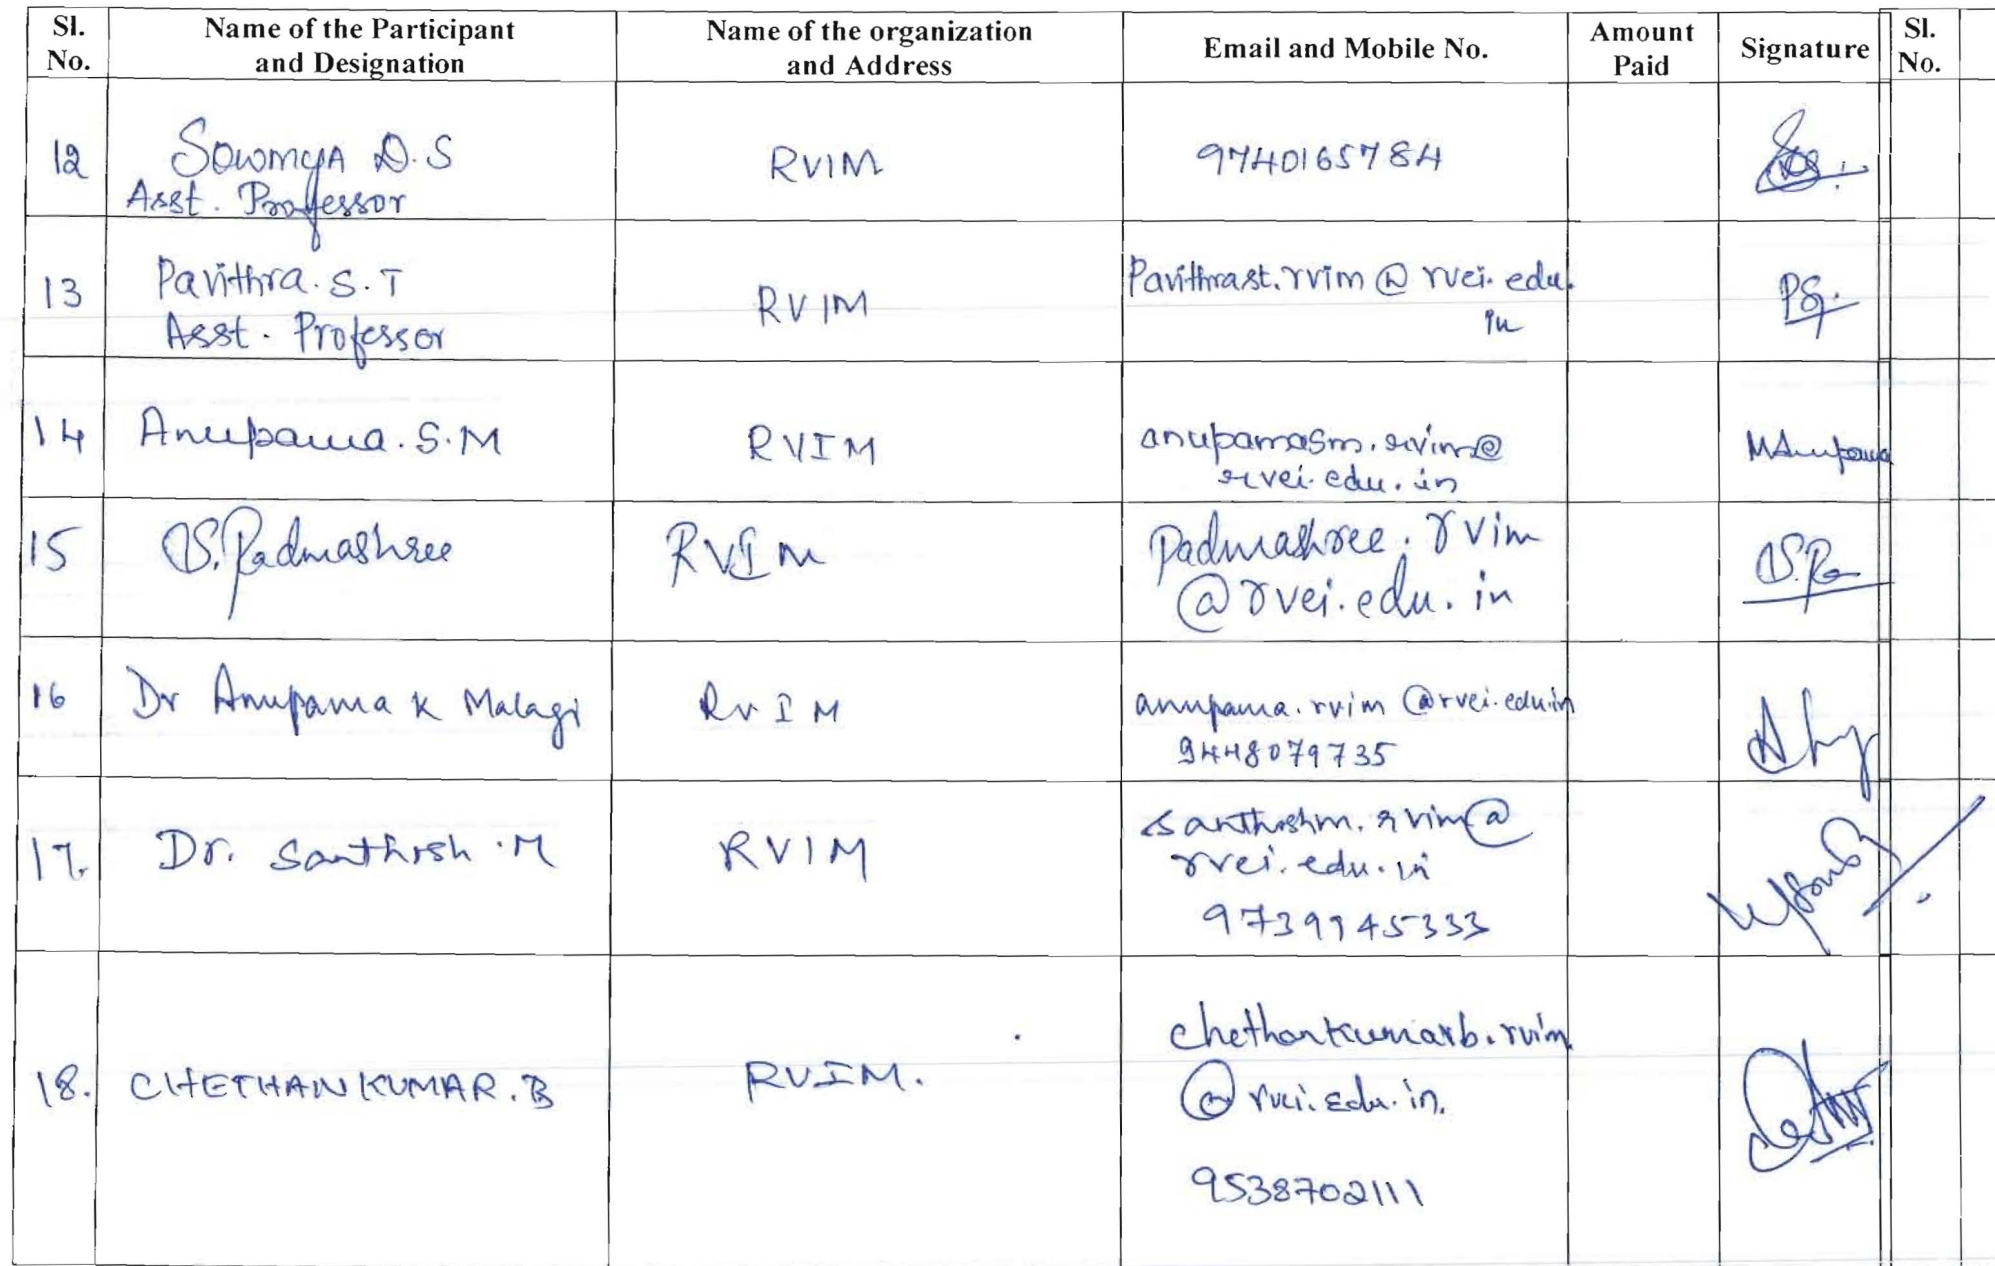 Sl. No.
Name of the Participant and Designation
Name of the organization and Address
Email and Mobile No.
Amount Paid
Signature
Sl. No.
12
Sowmya D.S
Asst. Professor
RVIM
9740165784
13
Pavithra.S.T
Asst. Professor
RVIM
Pavithrast.rvim@rvei.edu.
in
PS
14
Anupama.S.M
RVIM
anupamasm.rvim@
rvei.edu.in
MAnupama
15
VS.Padmashree
RVIM
Padmashree.rvim
@rvei.edu.in
16
Dr Anupama K Malagi
RVIM
anupama.rvim@rvei.edu.in
9448079735
17.
Dr. Santhosh.M
RVIM
santhoshm.rvim@
rvei.edu.in
9739945333
18.
CHETHAN KUMAR.B
RVIM.
chethankumarb.rvim
@rvei.edu.in.
9538702111